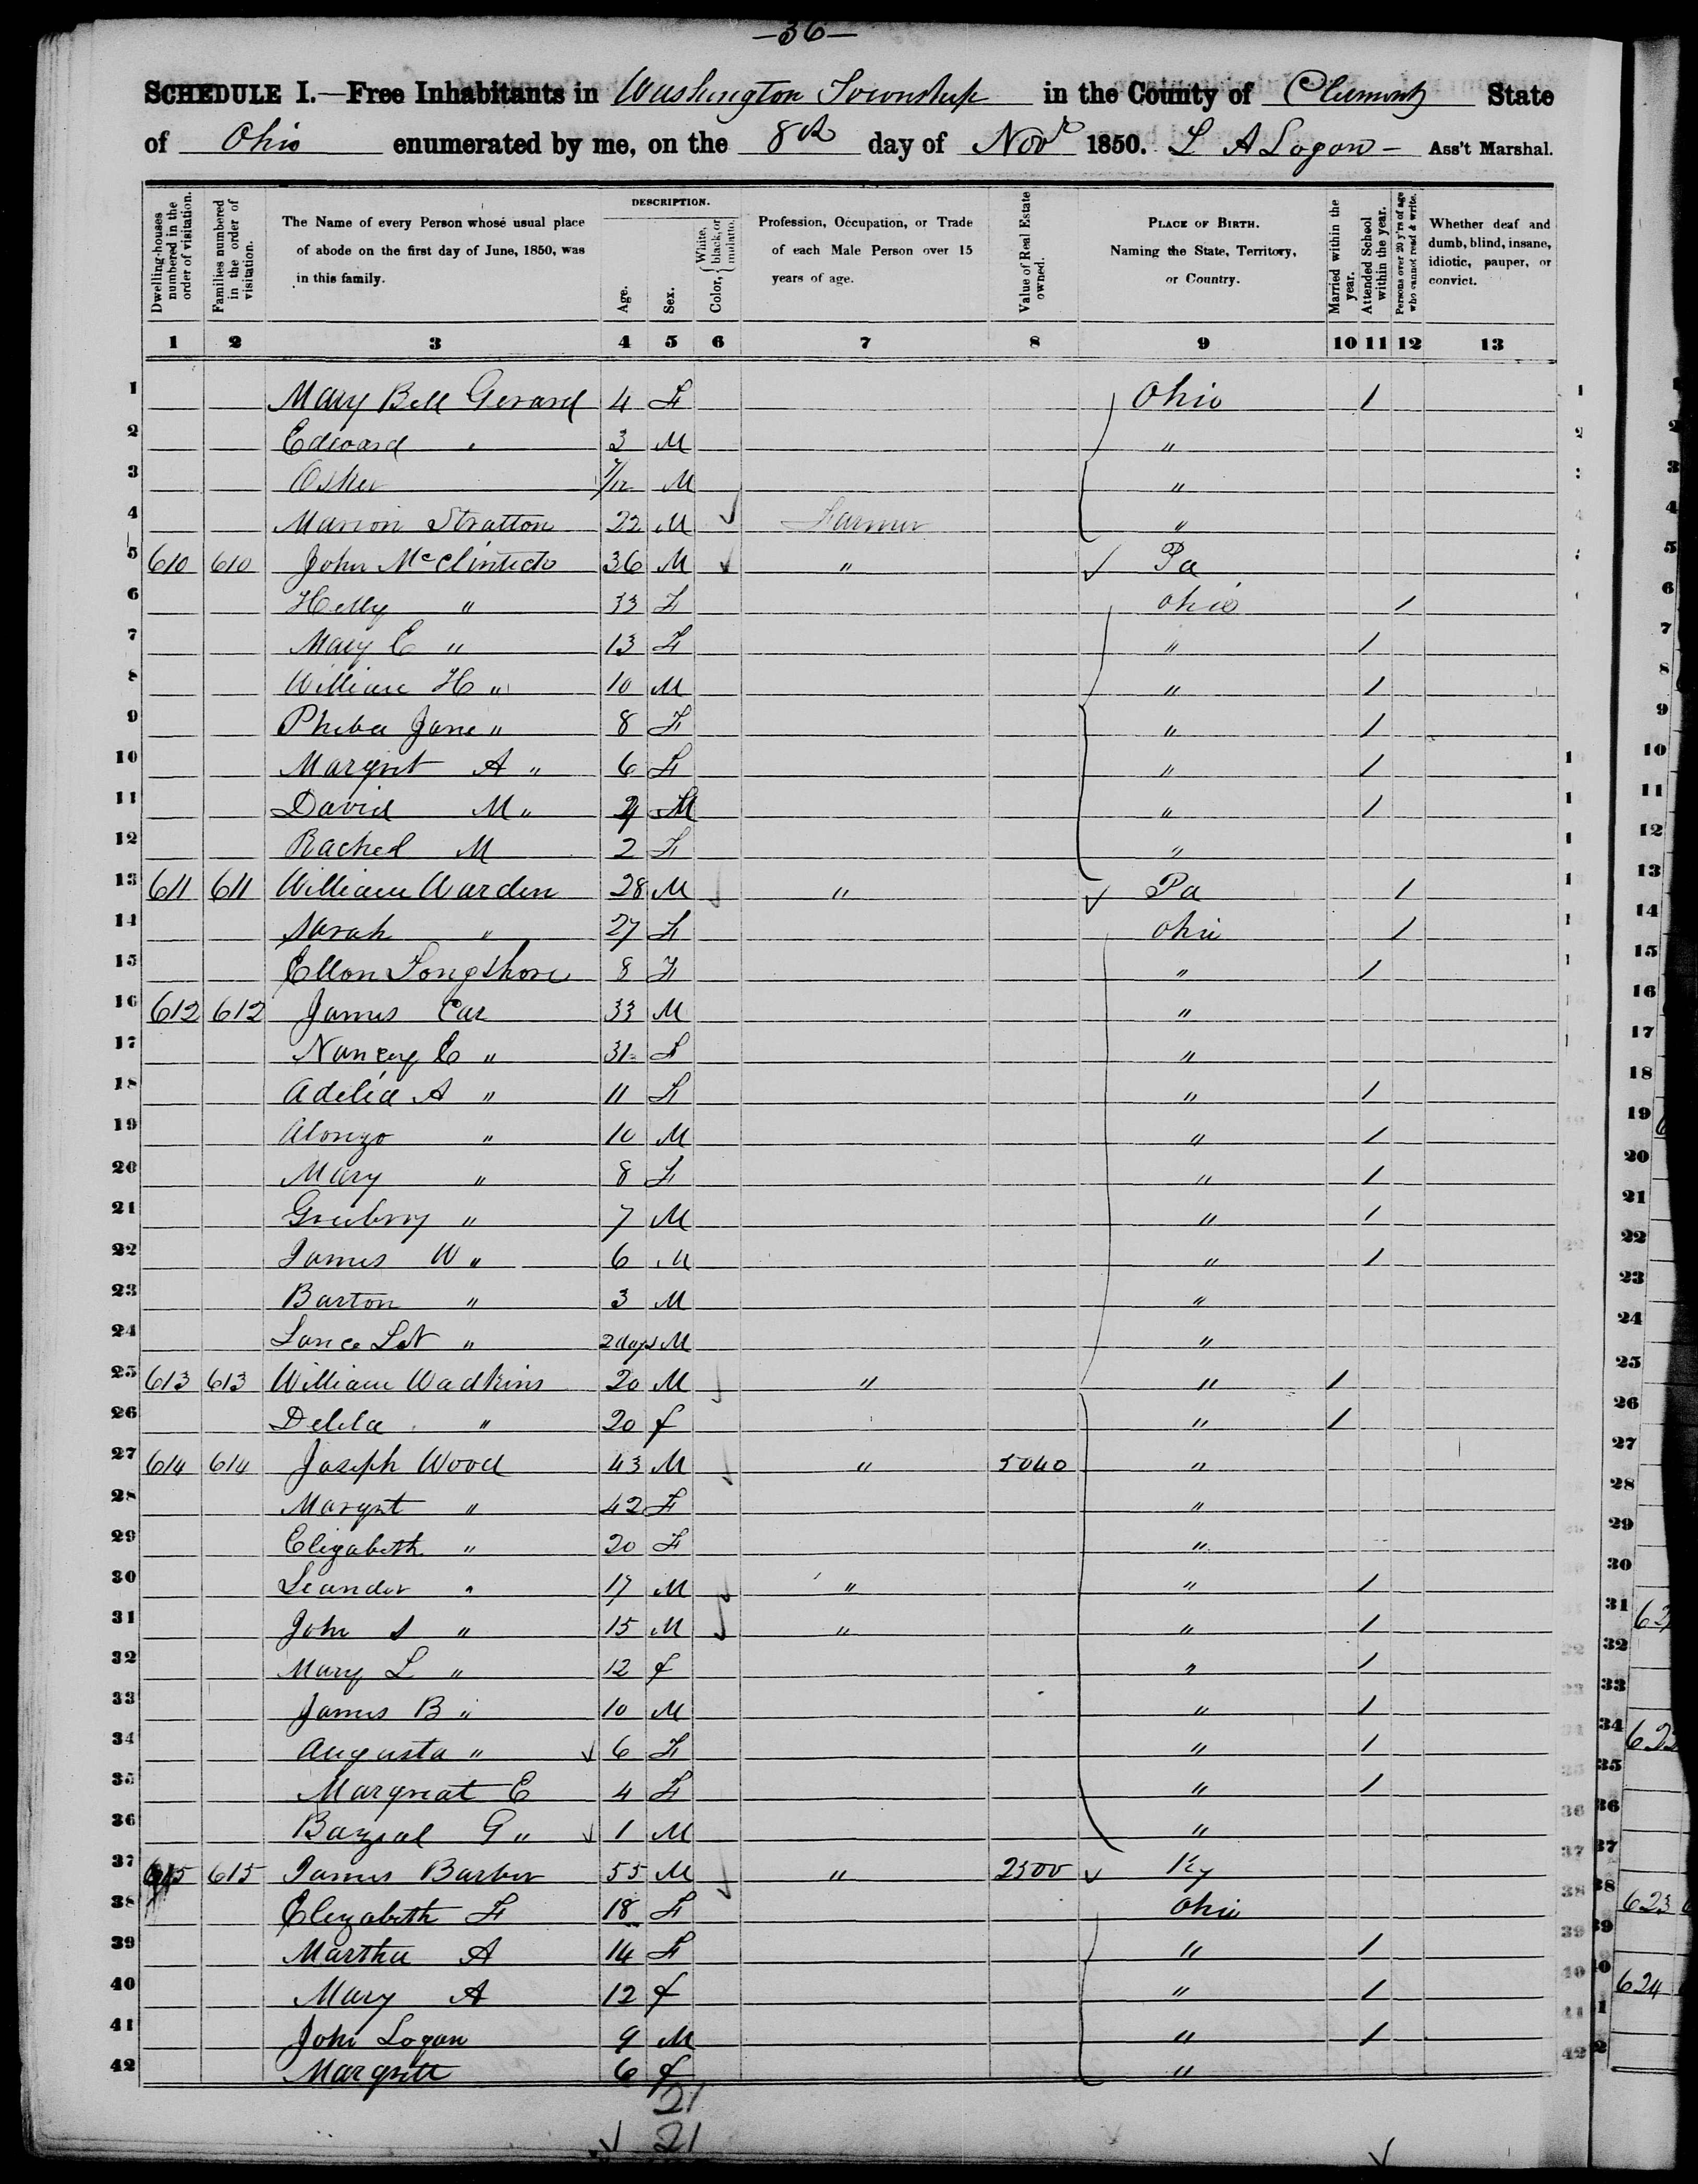 —36—
SCHEDULE I.—Free Inhabitants in Washington Township in the County of Clermont State
of Ohio enumerated by me, on the 8th day of Novr 1850. L A Logan – Ass't Marshal.
Dwelling-houses numbered in the order of visitation.
Families numbered in the order of visitation.
The Name of every Person whose usual place of abode on the first day of June, 1850, was in this family.
DESCRIPTION.
Age.
Sex.
Color, { White, black, or mulatto.
Profession, Occupation, or Trade of each Male Person over 15 years of age.
Value of Real Estate owned.
PLACE OF BIRTH. Naming the State, Territory, or Country.
Married within the year.
Attended School within the year.
Persons over 20 y'rs of age who cannot read & write.
Whether deaf and dumb, blind, insane, idiotic, pauper, or convict.
1 2 3 4 5 6 7 8 9 10 11 12 13
1 Mary Bell Gerard 4 F Ohio /
2 Edward " 3 M "
3 Osker 7/12 M "
4 Marion Stratton 22 M ✓ Farmer "
5 610 610 John McClintick 36 M ✓ " ✓ Pa
6 Hetty " 33 F Ohio /
7 Mary E " 13 F " /
8 William H " 10 M " /
9 Pheba Jane " 8 F " /
10 Margrit A " 6 F " /
11 David M " 4 M " /
12 Rachel M 2 F "
13 611 611 William Warden 28 M ✓ " ✓ Pa /
14 Sarah " 27 F Ohio /
15 Ellon Longshore 8 F " /
16 612 612 James Car 33 M "
17 Nancy C " 31 F "
18 Adelia A " 11 F " /
19 Alonzo " 10 M " /
20 Mary " 8 F " /
21 Greebrry " 7 M " /
22 James W " 6 M " /
23 Barton " 3 M "
24 " 2 days M "
25 613 613 William Wadkins 20 M ✓ " " /
26 Delila " 20 f " /
27 614 614 Joseph Wood 43 M ✓ " 5040 "
28 Margrt " 42 F "
29 Elizabeth " 20 F "
30 Leander " 17 M ✓ " " /
31 John S " 15 M ✓ " " /
32 Mary L " 12 f " /
33 James B " 10 M " /
34 Augusta " ✓ 6 F " /
35 Margreat E 4 F " /
36 Bazeal G " ✓ 1 M "
37 615 615 James Barber 55 M ✓ " 2500 ✓ Ky
38 Elezabeth F 18 F Ohio
39 Martha A 14 F " /
40 Mary A 12 f " /
41 John Logan 9 M " /
42 Margrette 6 f "
21
✓ 21 ✓
1
2
3
4
5
6
7
8
9
10
11
12
13
14
15
16
17
18
19
20
21
22
23
24
25
26
27
28
29
30
31
32
33
34 622
35
36
37
38 623
39
40 624